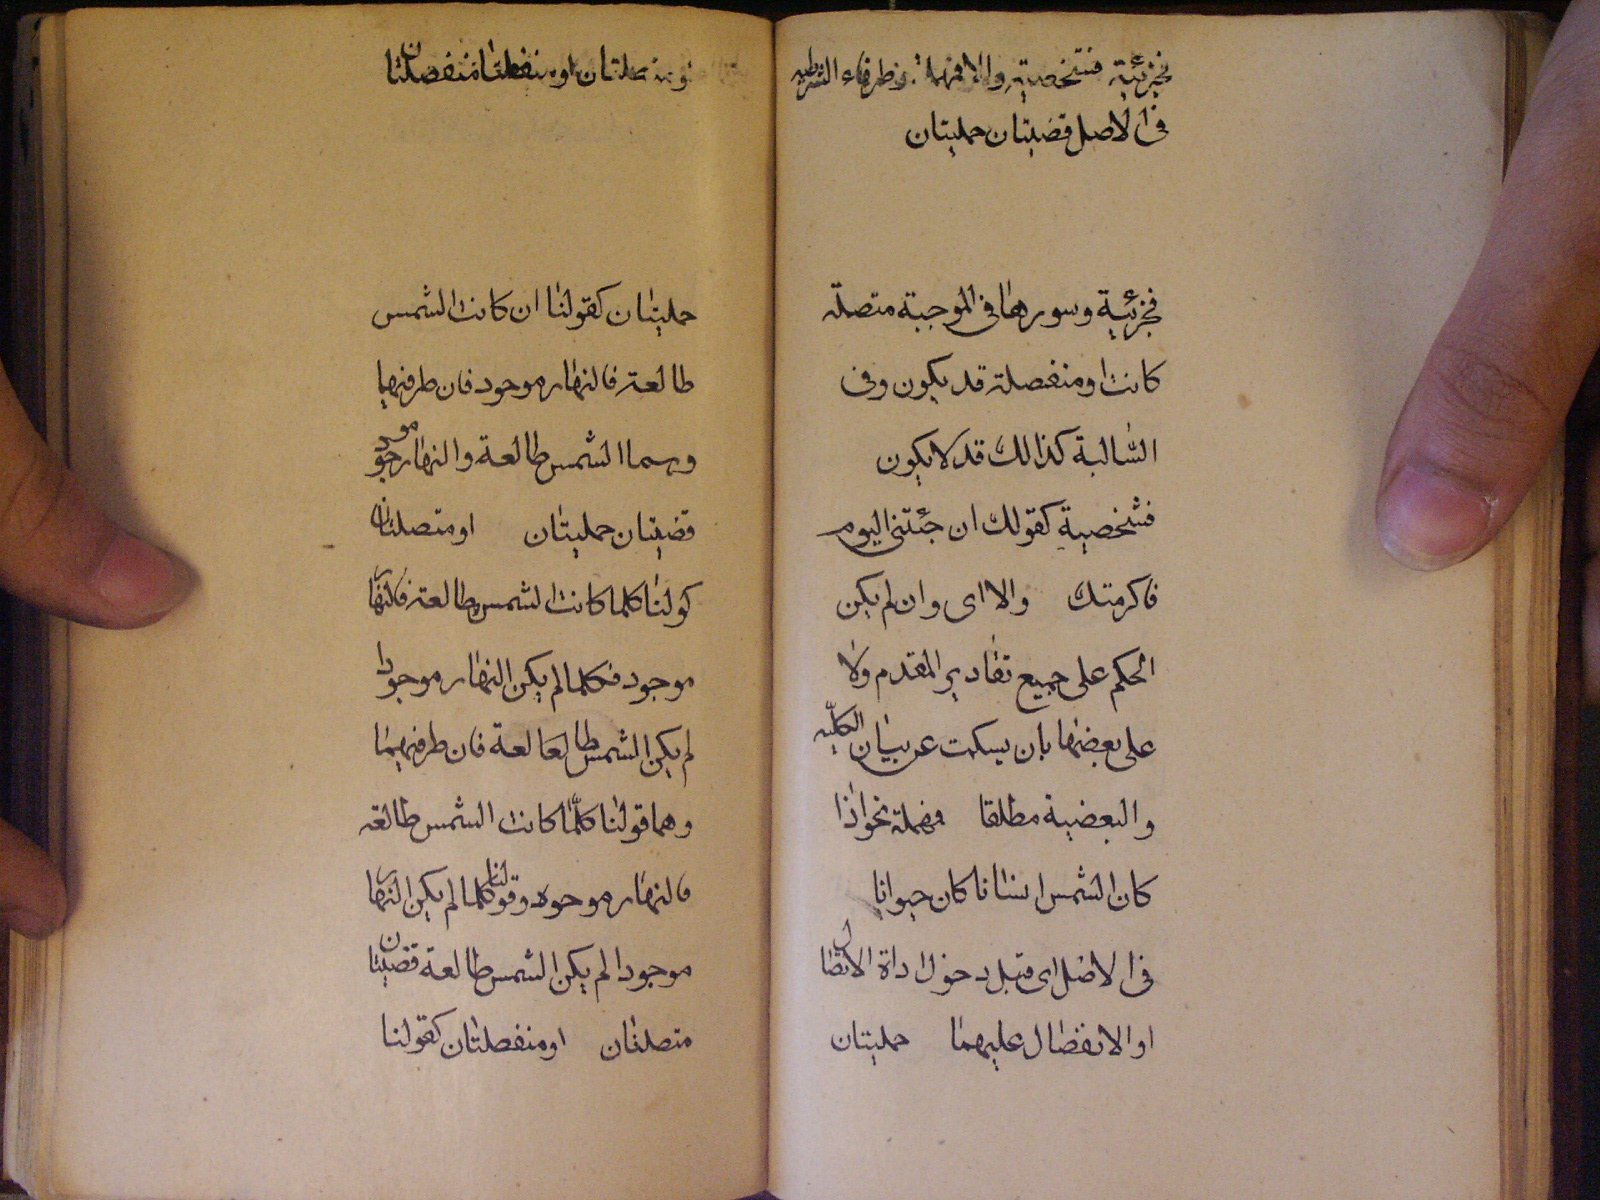 فجزئية فشخصية والا فمهملة وطرفاء الشرطيه
فى الاصل قضيتان حمليتان
فجزئية وسورها فى الموجبة متصلة
كانت او منفصلة قد يكون وفى
السالبة كذالك قد لا يكون
فشخصية كقولك ان جئتنى اليوم
فاكرمتك والا اى وان لم يكن
الحكم على جميع تقادير المقدم ولا
على بعضها بان يسكت عن بيان الكليه
والبعضية مطلقا فمهملة نحو اذا
كان الشمس انسانا كان حيوانا
فى الاصل اى قبل دخول اداة الاتصال
او الانفصال عليهما حمليتان
او متصلتان او منفصلتان
حمليتان كقولنا ان كانت الشمس
طالعة فالنهار موجود فان طرفيها
وهما الشمس طالعة والنهار موجود
قضيتان حمليتان او متصلتان
كولنا كلما كانت الشمس طالعة فالنهار
موجود فكلما لم يكن النهار موجودا
لم يكن الشمس طالعة فان طرفيهما
وهما قولنا كلّما كانت الشمس طالعة
فالنهار موجود وقولنا كلما لم يكن النهار
موجودا لم يكن الشمس طالعة قضيتان
متصلتان او منفصلتان كقولنا